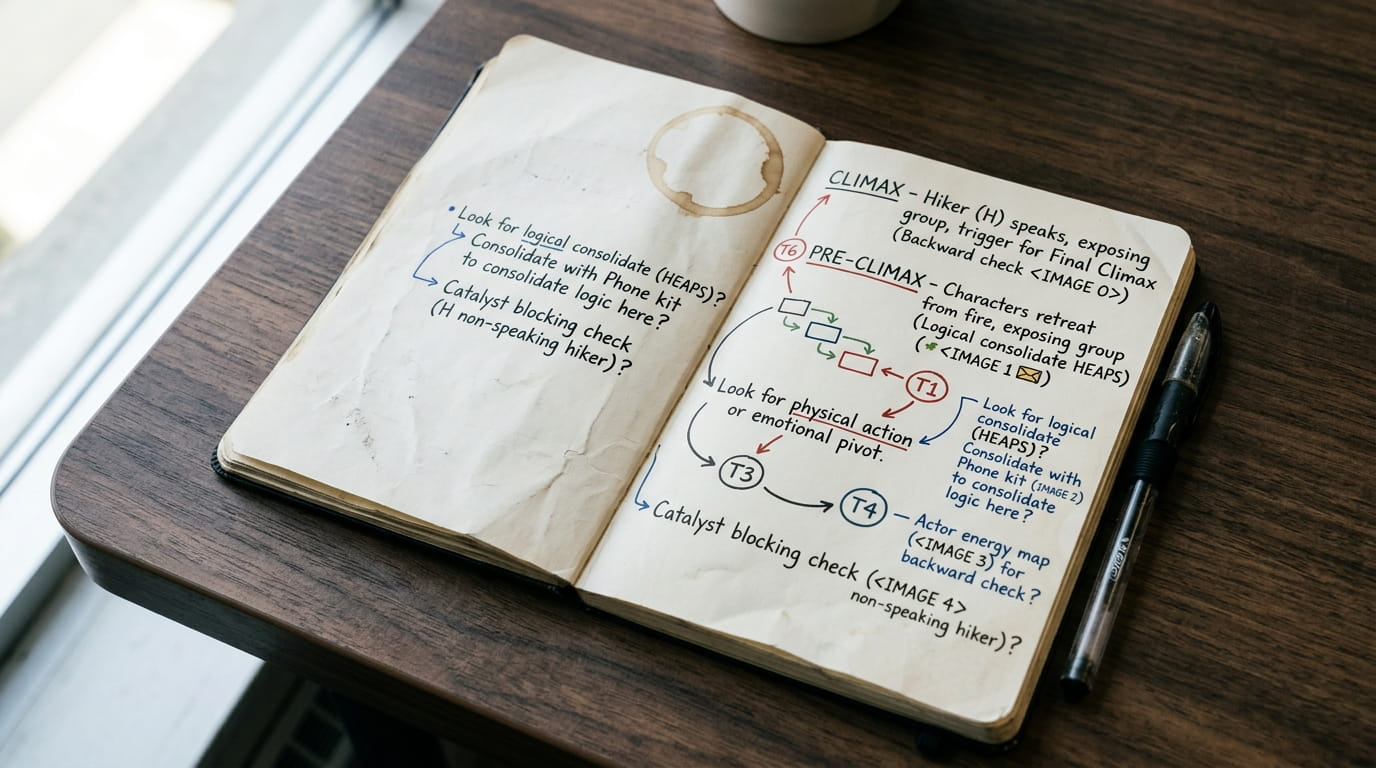 • Look for logical consolidate (HEAPS)?
Consolidate with Phone kit
to consolidate logic here?
Catalyst blocking check
(H non-speaking hiker)?
CLIMAX – Hiker (H) speaks, exposing
group, trigger for Final Climax
(Backward check <IMAGE 0>)
T6
PRE-CLIMAX – Characters retreat
from fire, exposing group
(Logical consolidate HEAPS)
(* <IMAGE 1 ✉)
T1
Look for physical action
or emotional pivot.
Look for logical
consolidate
(HEAPS)?
Consolidate with
Phone kit (IMAGE 2)
to consolidate
logic here?
T3
T4
– Actor energy map
(<IMAGE 3) for
backward check?
Catalyst blocking check (<IMAGE 4>
non-speaking hiker)?